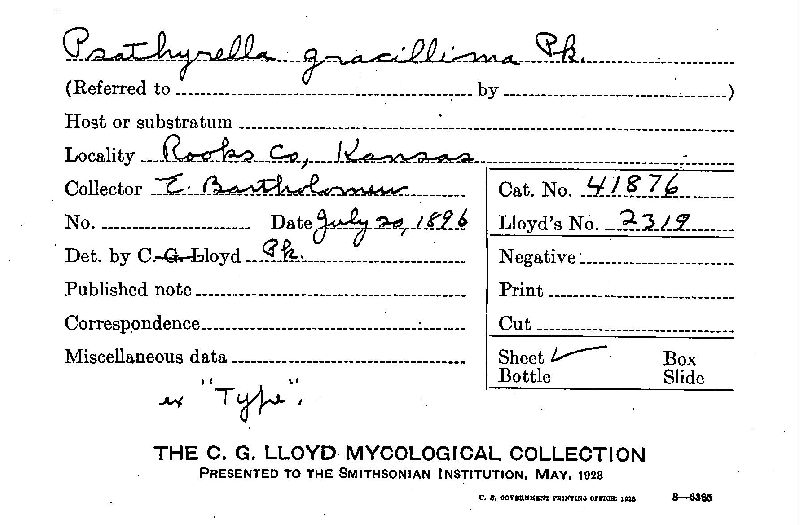 Psathyrella gracillima Pk.
(Referred to by )
Host or substratum
Locality Rooks Co, Kansas
Collector E. Bartholomew
Cat. No. 41876
No. Date July 20, 1896
Lloyd's No. 2319
Det. by C. G. Lloyd Pk.
Negative
Published note
Print
Correspondence
Cut
Miscellaneous data
Sheet ✓ Box
Bottle Slide
ex "Type".
THE C. G. LLOYD MYCOLOGICAL COLLECTION
PRESENTED TO THE SMITHSONIAN INSTITUTION, MAY, 1928
U. S. GOVERNMENT PRINTING OFFICE: 1928 8—6395